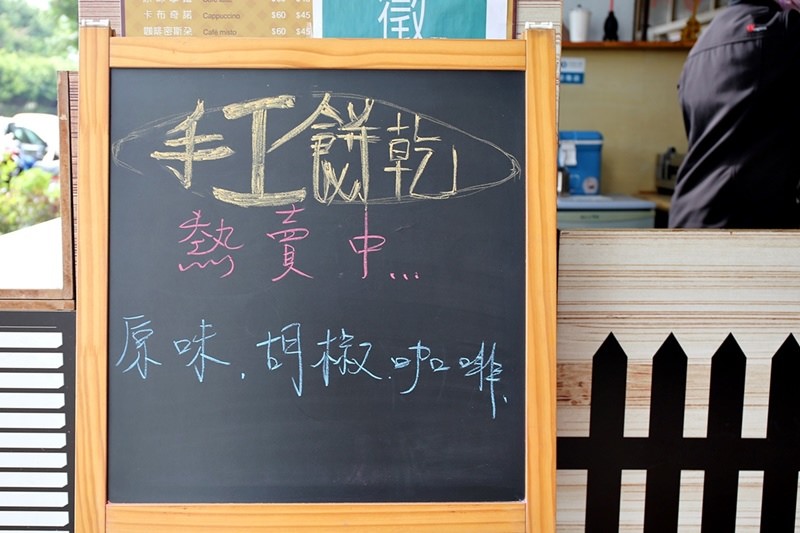 卡布奇諾 Cappuccino $60 $45
咖啡密斯朵 Café misto $60 $45
徵
手工餅乾
熱賣中...
原味.胡椒.咖啡.